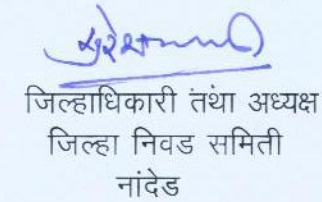 जिल्हाधिकारी तथा अध्यक्ष
जिल्हा निवड समिती
नांदेड